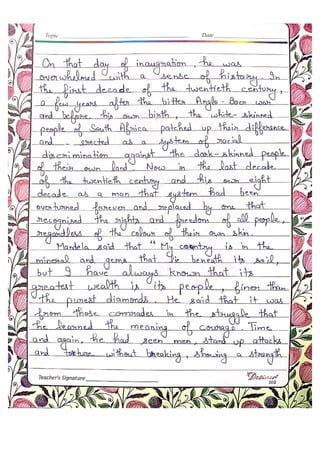 Topic Date
On that day of inaugration, he was
overwhelmed with a sense of history. In
the first decade of the twentieth century,
a few years after the bitter Anglo-Boer war
and before his own birth, the white-skinned
people of South Africa patched up their difference
and erected as a system of racial
discrimination against the dark-skinned people
of their own land. Now in the last decade
of the twentieth century and his own eight
decade as a man that system had been
overturned forever and replaced by one that
recognised the rights and freedom of all people,
regardless of the colour of their own skin.
Mandela said that "My country is in the
mineral and gems that lie beneath its soil,
but I have always known that its
greatest wealth is its people, finer than
the purest diamonds. He said that it was
from those comrades in the struggle that
he learned the meaning of courage. Time
and again, he had seen men, stand up attacks
and torture without breaking, showing a strength
Teacher's Signature